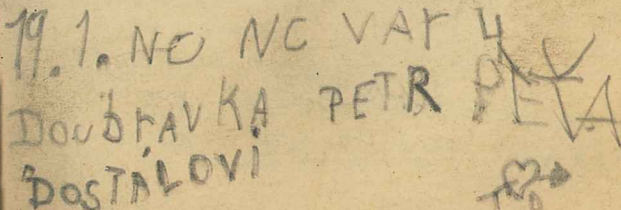 19.1. NO NC VAr 4
DoubrAVKA PETR PEŤA
DOSTÁLOVI